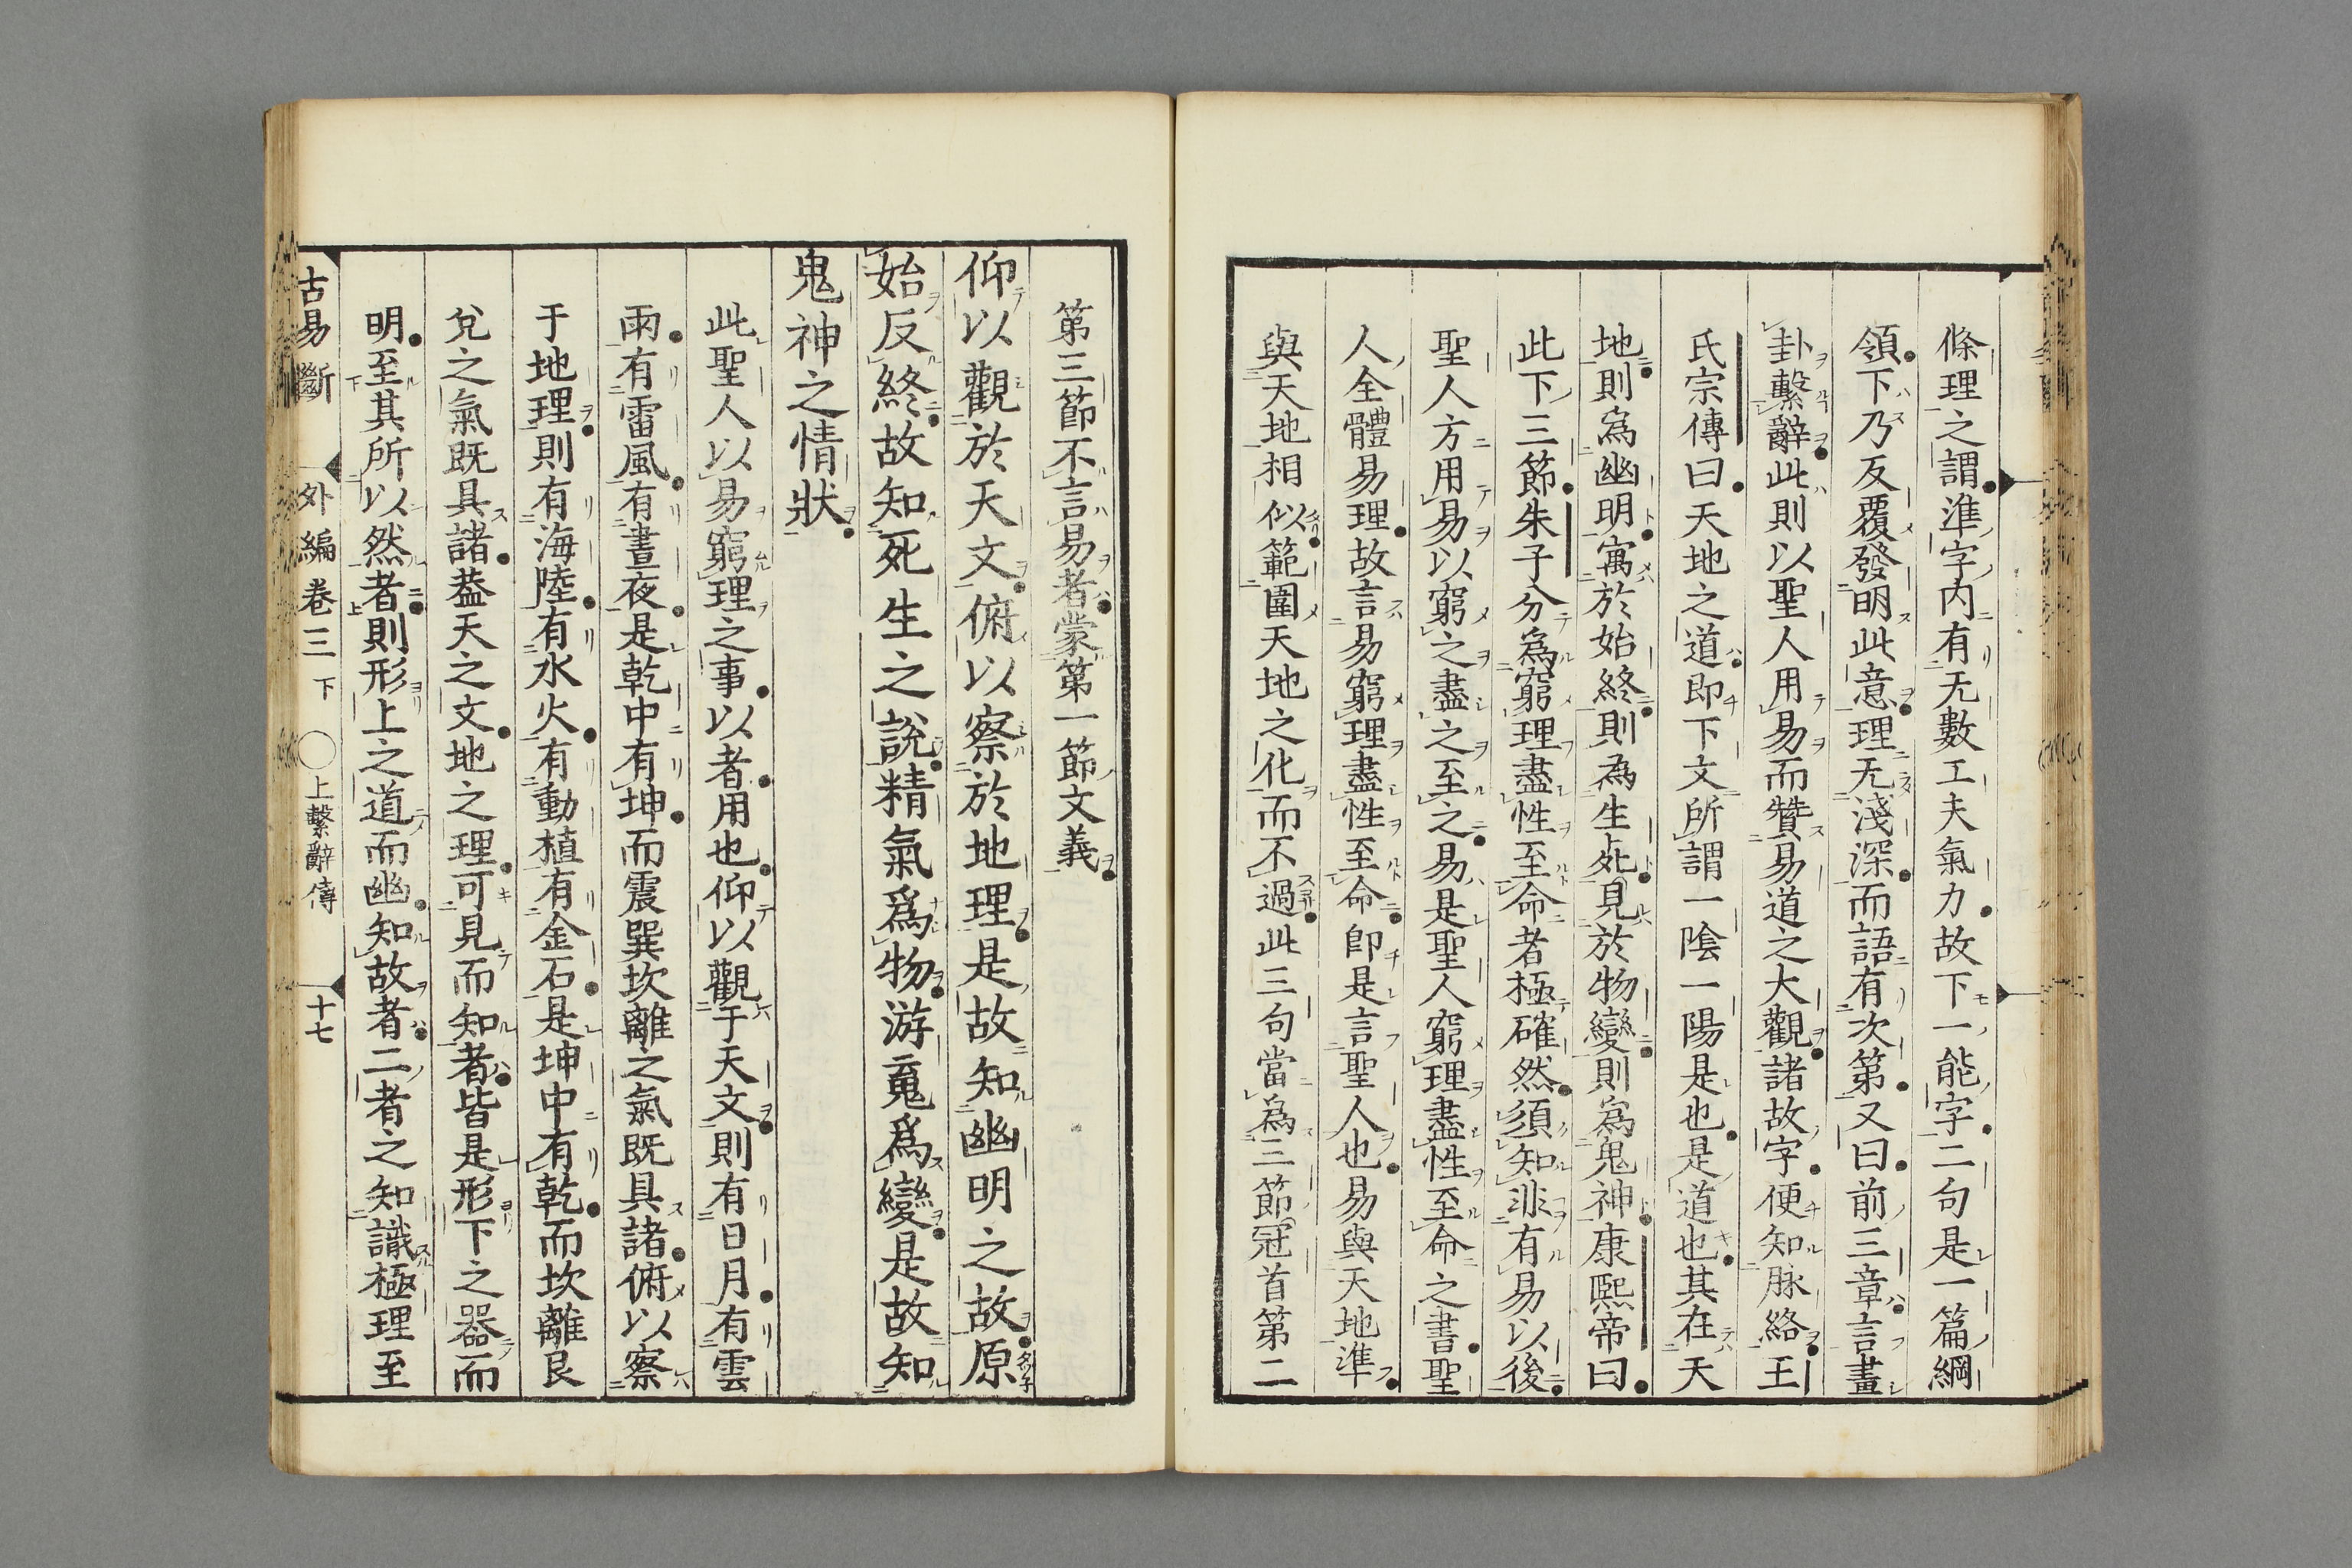 條理之謂準字内有无數工夫氣力故下一能字二句是一篇綱
領下乃反覆發明此意理无淺深而語有次第又曰前三章言畫
卦繫辭此則以聖人用易而贊易道之大觀諸故字便知脉絡王
氏宗傳曰天地之道即下文所謂一陰一陽是也是道也其在天
地則為幽明寓於始終則為生死見於物變則為鬼神康熙帝曰
此下三節朱子分為窮理盡性至命者極確然須知非有易以後
聖人方用易以窮之盡之至之易是聖人窮理盡性至命之書聖
人全體易理故言易窮理盡性至命即是言聖人也易與天地準
與天地相似範圍天地之化而不過此三句當為三節冠首第二
第三節不言易者蒙第一節文義
仰以觀於天文俯以察於地理是故知幽明之故原
始反終故知死生之說精氣爲物游䰟爲變是故知
鬼神之情狀
此聖人以易窮理之事以者用也仰以觀于天文則有日月有雲
雨有雷風有晝夜是乾中有坤而震巽坎離之氣既具諸俯以察
于地理則有海陸有水火有動植有金石是坤中有乾而坎離艮
兌之氣既具諸葢天之文地之理可見而知者皆是形下之器而
明至其所以然者則形上之道而幽知故者二者之知識極理至
古易斷 外編卷三 下 ○上繫辭傳 十七